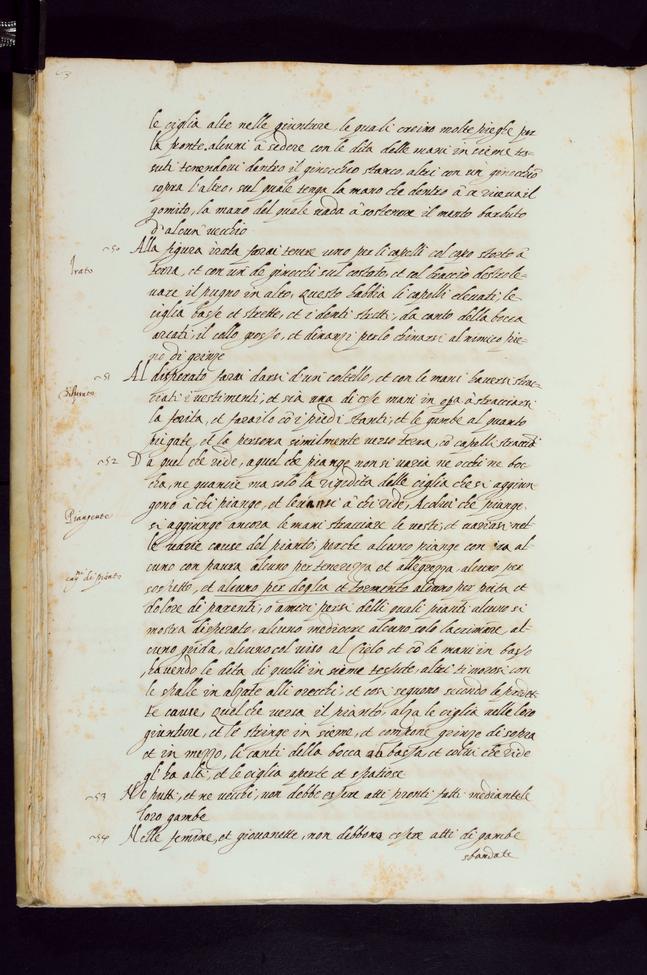 le ciglia alte nelle giunture, le quali creino molte pieghe per
la fronte, alcuni à sedere con le dita delle mani in sieme tes-
suti tenendovi dentro il ginocchio stanco, altri con un ginocchio
sopra l'altro, sul quale tenga la mano che dentro à se riceva il
gomito, la mano del quale vada à sostenere il mento barbuto
d'alcun vecchio
50 Alla figura irata farai tenere uno per li capelli col capo storto à
Irato
terra, et con un de ginocchi sul costato, et col braccio destro le-
vare il pugno in alto, Questo habbia li capelli elevati, le
ciglia basse et strette, et i denti stretti, da canto della bocca
arcati, il collo grosso, et dinanzi per lo chinarsi al nimico pie-
no di grinze
51 Al disperato farai darsi d'un coltello, et con le mani haversi strac-
ciati i vestimenti, et sia una di esse mani in opa à stracciarsi
la ferita, et farailo cõ i piedi stanti, et le gambe al quanto
piegate, et la persona similmente verso terra, cõ capelli stracciati
52 Da quel che ride, a quel che piange non si varia ne occhi ne boc-
cha, ne guancie ma solo la rigidità delle ciglia che si aggiun-
gono à chi piange, et levansi à chi ride, A colui che piange
Piangente
si aggiunge ancora le mani stracciare le veste, et variasi nel-
le varie cause del pianto, perche alcuno piange con ira al-
cuno con paura alcuno per tenerezza et allegrezza, alcuno per
di pianto
sospetto, et alcuno per doglia et tormento alcuno per pietà et
dolore de parenti, o amici persi delli quali pianti alcuno si
mostra disperato, alcuno mediocre alcuno solo lacrimare, al-
cuno grida, alcuno col viso al Cielo et cõ le mani in basso
havendo le dita di quelle in sieme tessute, altri timorosi con
le spalle in alzate alli orecchi, et cosi seguono secondo le predet-
te cause, Quel che versa il pianto, alza le ciglia nelle loro
giunture, et le stringe in sieme, et compone grinze di sopra
et in mezzo, li canti della bocca bassa, et colui che ride
gli ha alti, et le ciglia aperte et spatiose
53 Ne putti, et ne vecchi, non debbe essere atti pronti fatti mediante le
loro gambe
54 Nelle femine, et giovanette, non debbono essere atti di gambe
sbandate